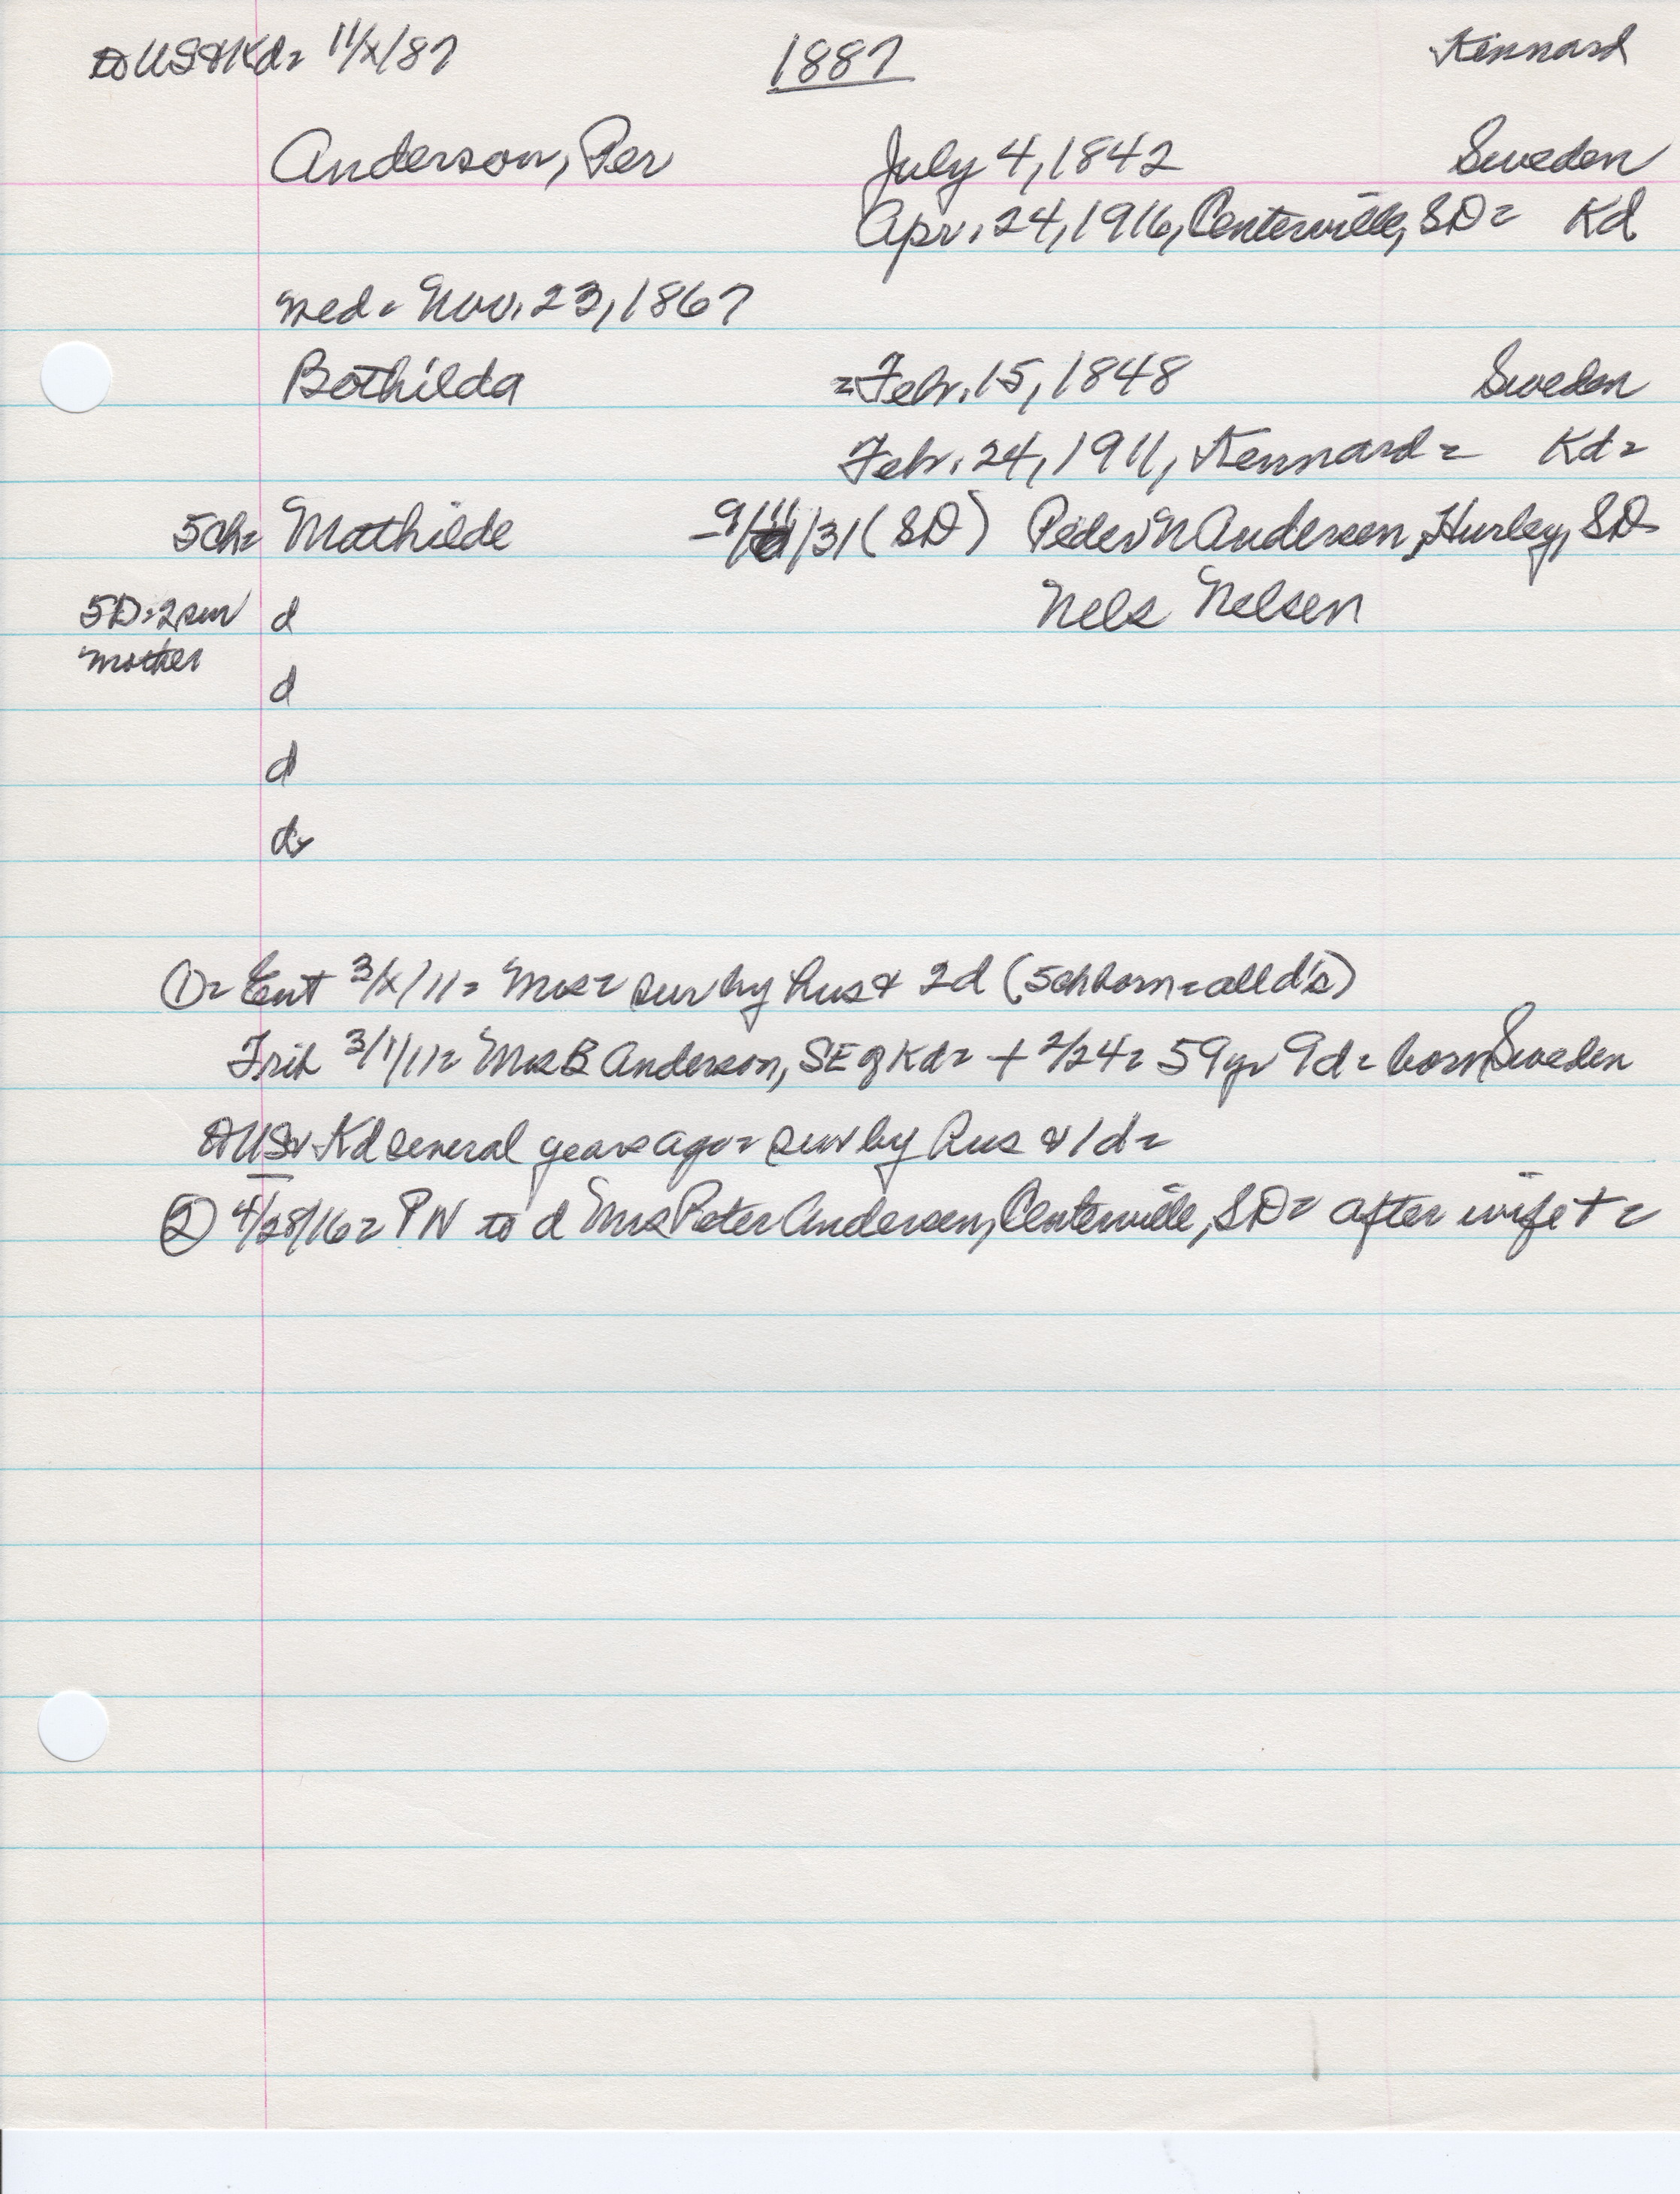 to US & Kd = 11/x/87 1887 Kennard
Anderson, Per July 4, 1842 Sweden
Apr. 24, 1916, Centerville, SD = Kd
wed = Nov. 23, 1867
Bothilda = Febr. 15, 1848 Sweden
Febr. 24, 1911, Kennard = Kd =
5ch = Mathilde - 9/11/31 (SD) Peder N Andersen, Hurley, SD
5D = 2 sur d Nels Nelsen
mother
d
d
d
① = Ent 3/x/11 = Mrs = sur by hus & 2d (5ch born = all d's)
Trib 3/1/11 = Mrs B Anderson, SE of Kd = + 2/24 = 59 yr 9d = born Sweden
to US & Kd several years ago = sur by hus & 1d =
② 4/28/16 = PN to d Mrs Peter Andersen, Centerville, SD = after wife + =